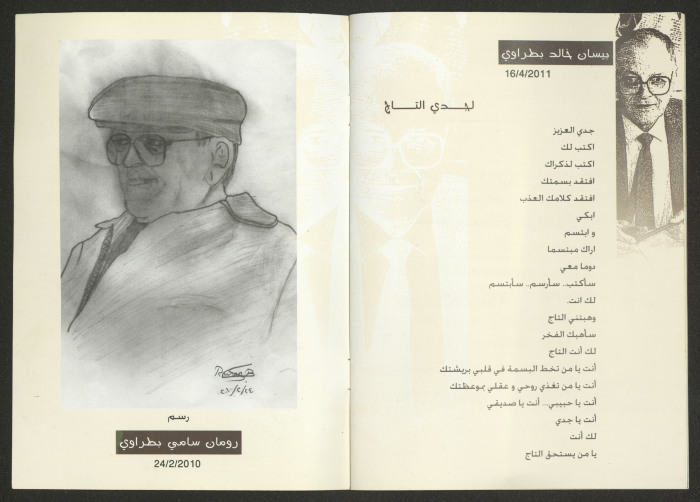 بيسان خالد بطراوي
16/4/2011
لجدي التاج
جدي العزيز
اكتب لك
اكتب لذكراك
افتقد بسمتك
افتقد كلامك العذب
ابكي
و ابتسم
اراك مبتسما
دوما معي
سأكتب.. سأرسم.. سأبتسم
لك انت.
وهبتني التاج
سأهبك الفخر
لك أنت التاج
أنت يا من تخط البسمة في قلبي بريشتك
أنت يا من تغذي روحي و عقلي بموعظتك
أنت يا حبيبي.. أنت يا صديقي
أنت يا جدي
لك أنت
يا من يستحق التاج
رسم
رومان سامي بطراوي
24/2/2010